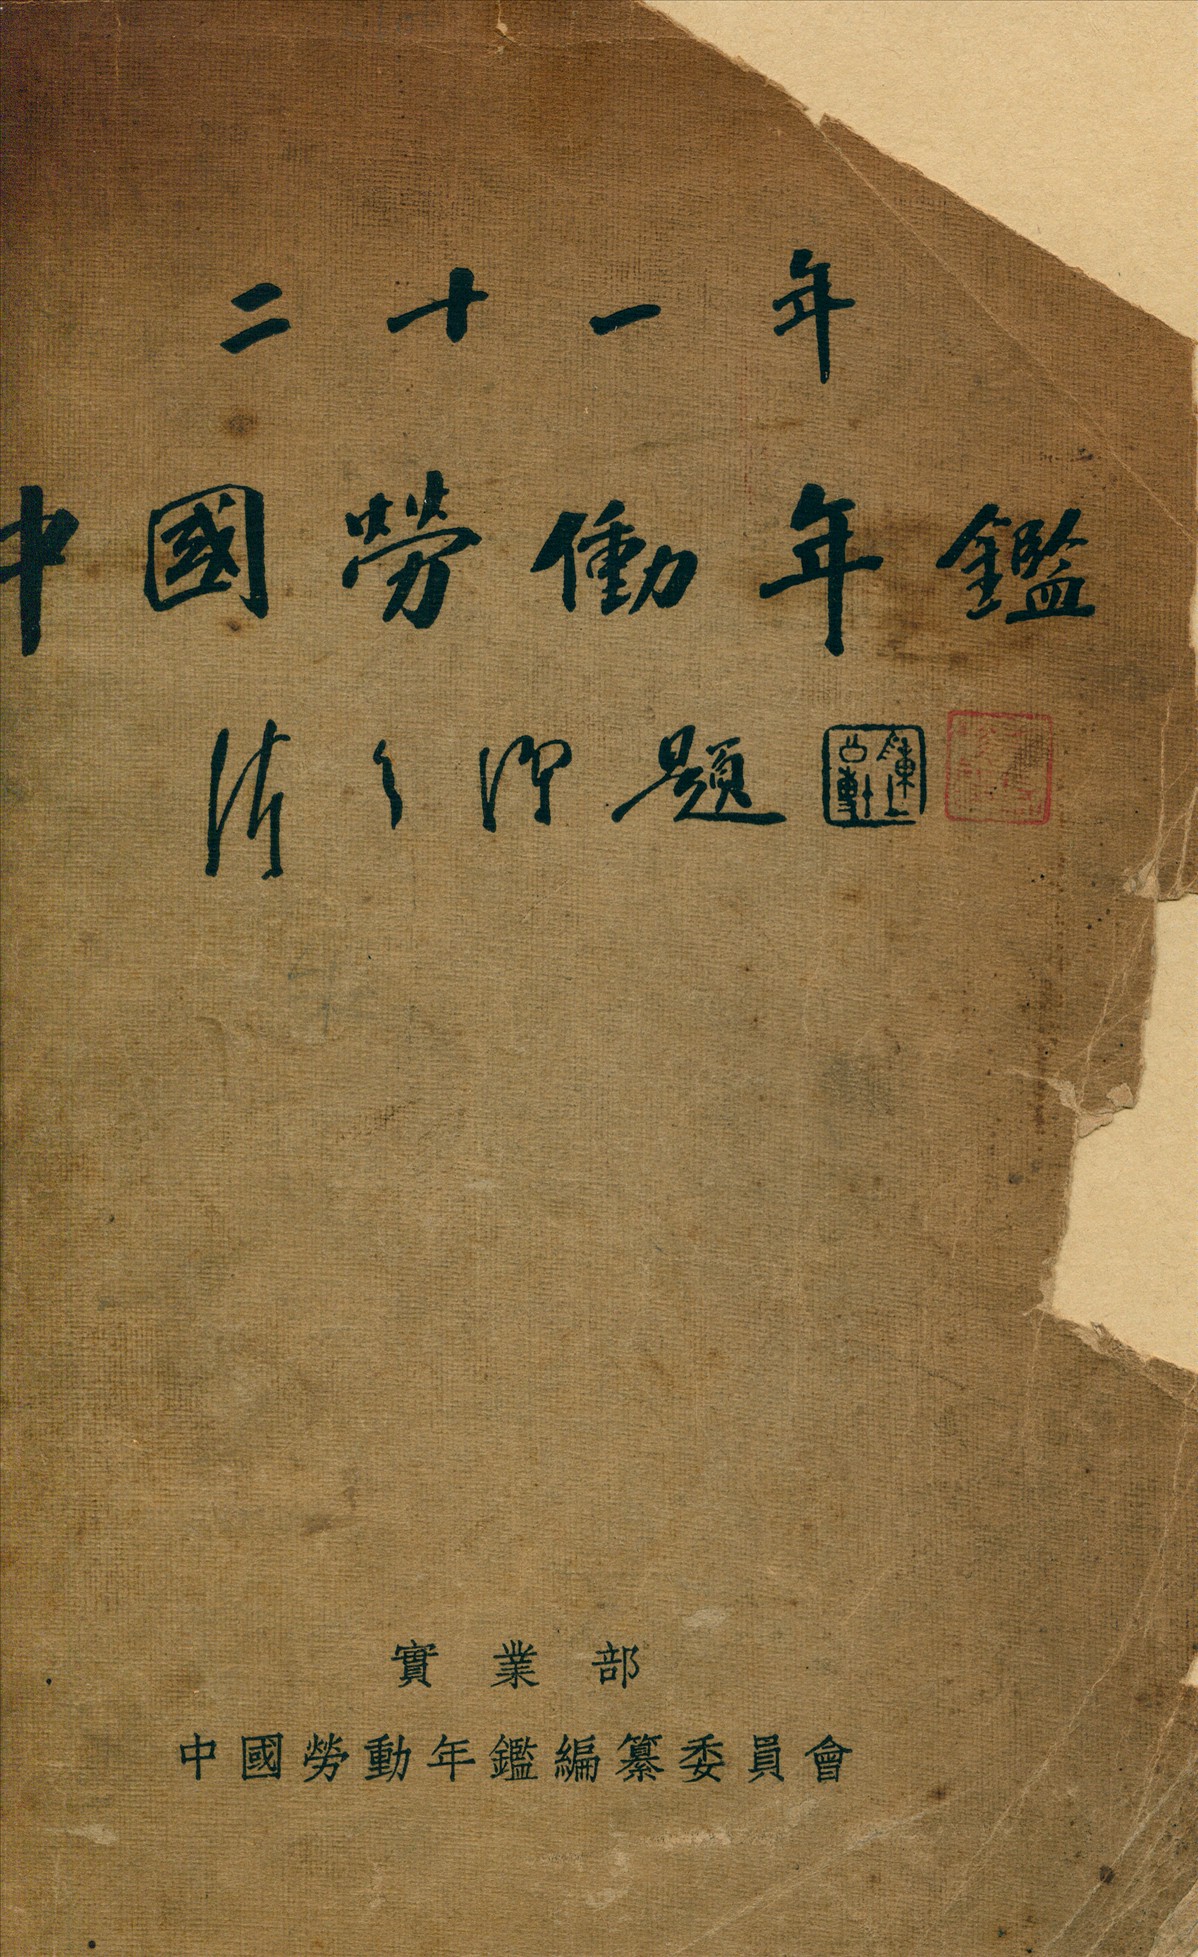 二十一年
中國勞働年鑑
陳公博題
實業部
中國勞動年鑑編纂委員會